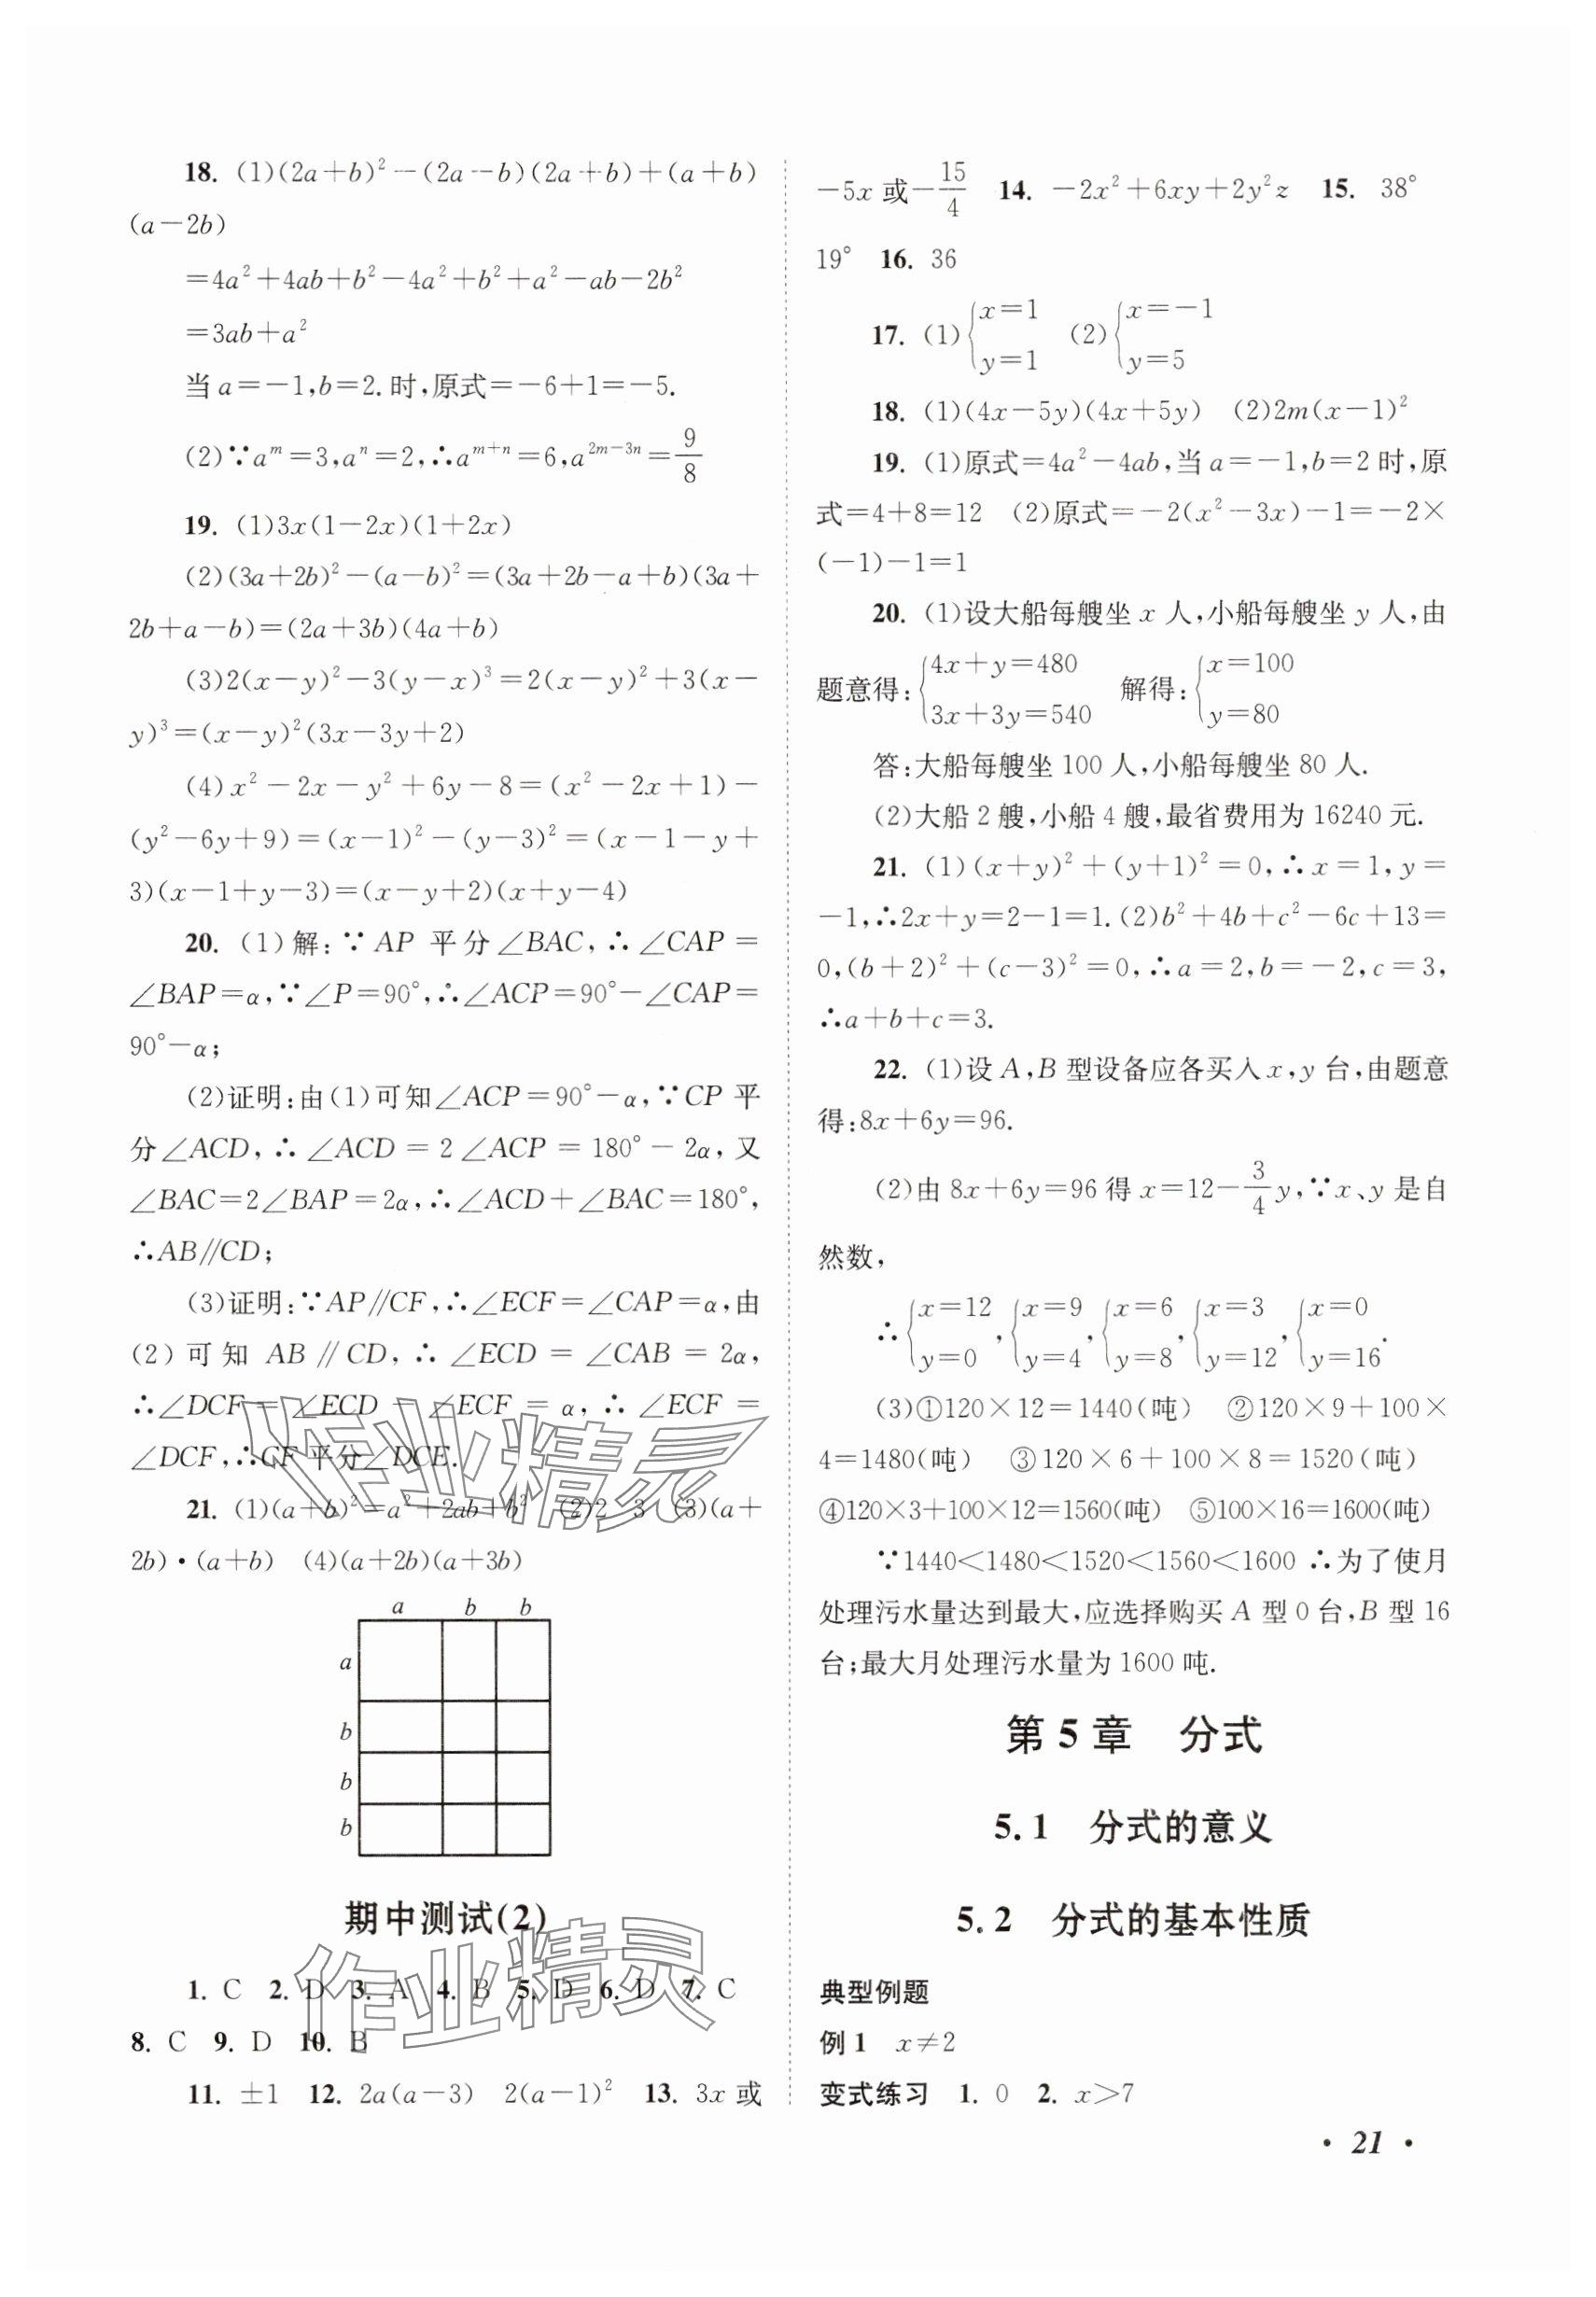 18. (1)(2a+b)²-(2a-b)(2a+b)+(a+b)
(a-2b)
=4a²+4ab+b²-4a²+b²+a²-ab-2b²
=3ab+a²
当a=-1,b=2.时,原式=-6+1=-5.
(2)∵aᵐ=3,aⁿ=2,∴aᵐ⁺ⁿ=6,a²ᵐ⁻³ⁿ=9/8
19. (1)3x(1-2x)(1+2x)
(2)(3a+2b)²-(a-b)²=(3a+2b-a+b)(3a+
2b+a-b)=(2a+3b)(4a+b)
(3)2(x-y)²-3(y-x)³=2(x-y)²+3(x-
y)³=(x-y)²(3x-3y+2)
(4)x²-2x-y²+6y-8=(x²-2x+1)-
(y²-6y+9)=(x-1)²-(y-3)²=(x-1-y+
3)(x-1+y-3)=(x-y+2)(x+y-4)
20. (1)解:∵AP 平分∠BAC,∴∠CAP=
∠BAP=α,∵∠P=90°,∴∠ACP=90°-∠CAP=
90°-α;
(2)证明:由(1)可知∠ACP=90°-α,∵CP平
分∠ACD,∴∠ACD=2∠ACP=180°-2α,又
∠BAC=2∠BAP=2α,∴∠ACD+∠BAC=180°,
∴AB∥CD;
(3)证明:∵AP∥CF,∴∠ECF=∠CAP=α,由
(2)可知 AB∥CD,∴∠ECD=∠CAB=2α,
∴∠DCF=∠ECD-∠ECF=α,∴∠ECF=
∠DCF,∴CF平分∠DCE.
21. (1)(a+b)²=a²+2ab+b² (2)2 3 (3)(a+
2b)·(a+b) (4)(a+2b)(a+3b)
a b b
a
b
b
b
期中测试(2)
1. C 2. D 3. A 4. B 5. D 6. D 7. C
8. C 9. D 10. B
11. ±1 12. 2a(a-3) 2(a-1)² 13. 3x或
-5x或-15/4 14. -2x²+6xy+2y²z 15. 38°
19° 16. 36
17. (1){x=1 y=1 (2){x=-1 y=5
18. (1)(4x-5y)(4x+5y) (2)2m(x-1)²
19. (1)原式=4a²-4ab,当a=-1,b=2时,原
式=4+8=12 (2)原式=-2(x²-3x)-1=-2×
(-1)-1=1
20. (1)设大船每艘坐x人,小船每艘坐y人,由
题意得:{4x+y=480 3x+3y=540 解得:{x=100 y=80
答:大船每艘坐100人,小船每艘坐80人.
(2)大船2艘,小船4艘,最省费用为16240元.
21. (1)(x+y)²+(y+1)²=0,∴x=1,y=
-1,∴2x+y=2-1=1.(2)b²+4b+c²-6c+13=
0,(b+2)²+(c-3)²=0,∴a=2,b=-2,c=3,
∴a+b+c=3.
22. (1)设A,B型设备应各买入x,y台,由题意
得:8x+6y=96.
(2)由8x+6y=96得x=12-3/4y,∵x、y是自
然数,
∴{x=12 y=0,{x=9 y=4,{x=6 y=8,{x=3 y=12,{x=0 y=16.
(3)①120×12=1440(吨) ②120×9+100×
4=1480(吨) ③120×6+100×8=1520(吨)
④120×3+100×12=1560(吨) ⑤100×16=1600(吨)
∵1440<1480<1520<1560<1600 ∴为了使月
处理污水量达到最大,应选择购买A型0台,B型16
台;最大月处理污水量为1600吨.
第5章 分式
5.1 分式的意义
5.2 分式的基本性质
典型例题
例1 x≠2
变式练习 1. 0 2. x>7
· 21 ·
作业精灵
作业精灵